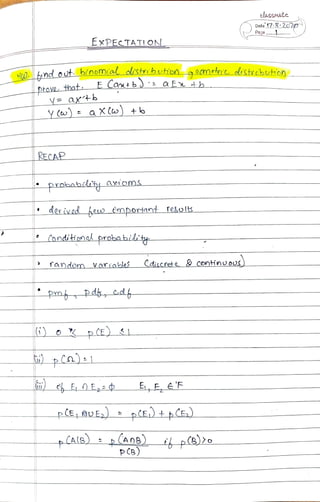 classmate
Date 17.8.2020
Page 1
EXPECTATION
find out binomial distribution, geometric distribution
prove that: E(ax+b) = aEx + b
Y = ax+b
Y(ω) = a X(ω) + b
RECAP
• probability axioms
• derived few important results
• Conditional probability
• random variables (discrete & continuous)
• pmf, pdf, cdf
(i) 0 ≤ p(E) ≤ 1
(ii) p(Ω) = 1
(iii) if E₁ ∩ E₂ = ϕ E₁, E₂ ∈ F
p(E₁ ∪ E₂) = p(E₁) + p(E₂)
p(A|B) = p(A∩B) if p(B)>0
p(B)